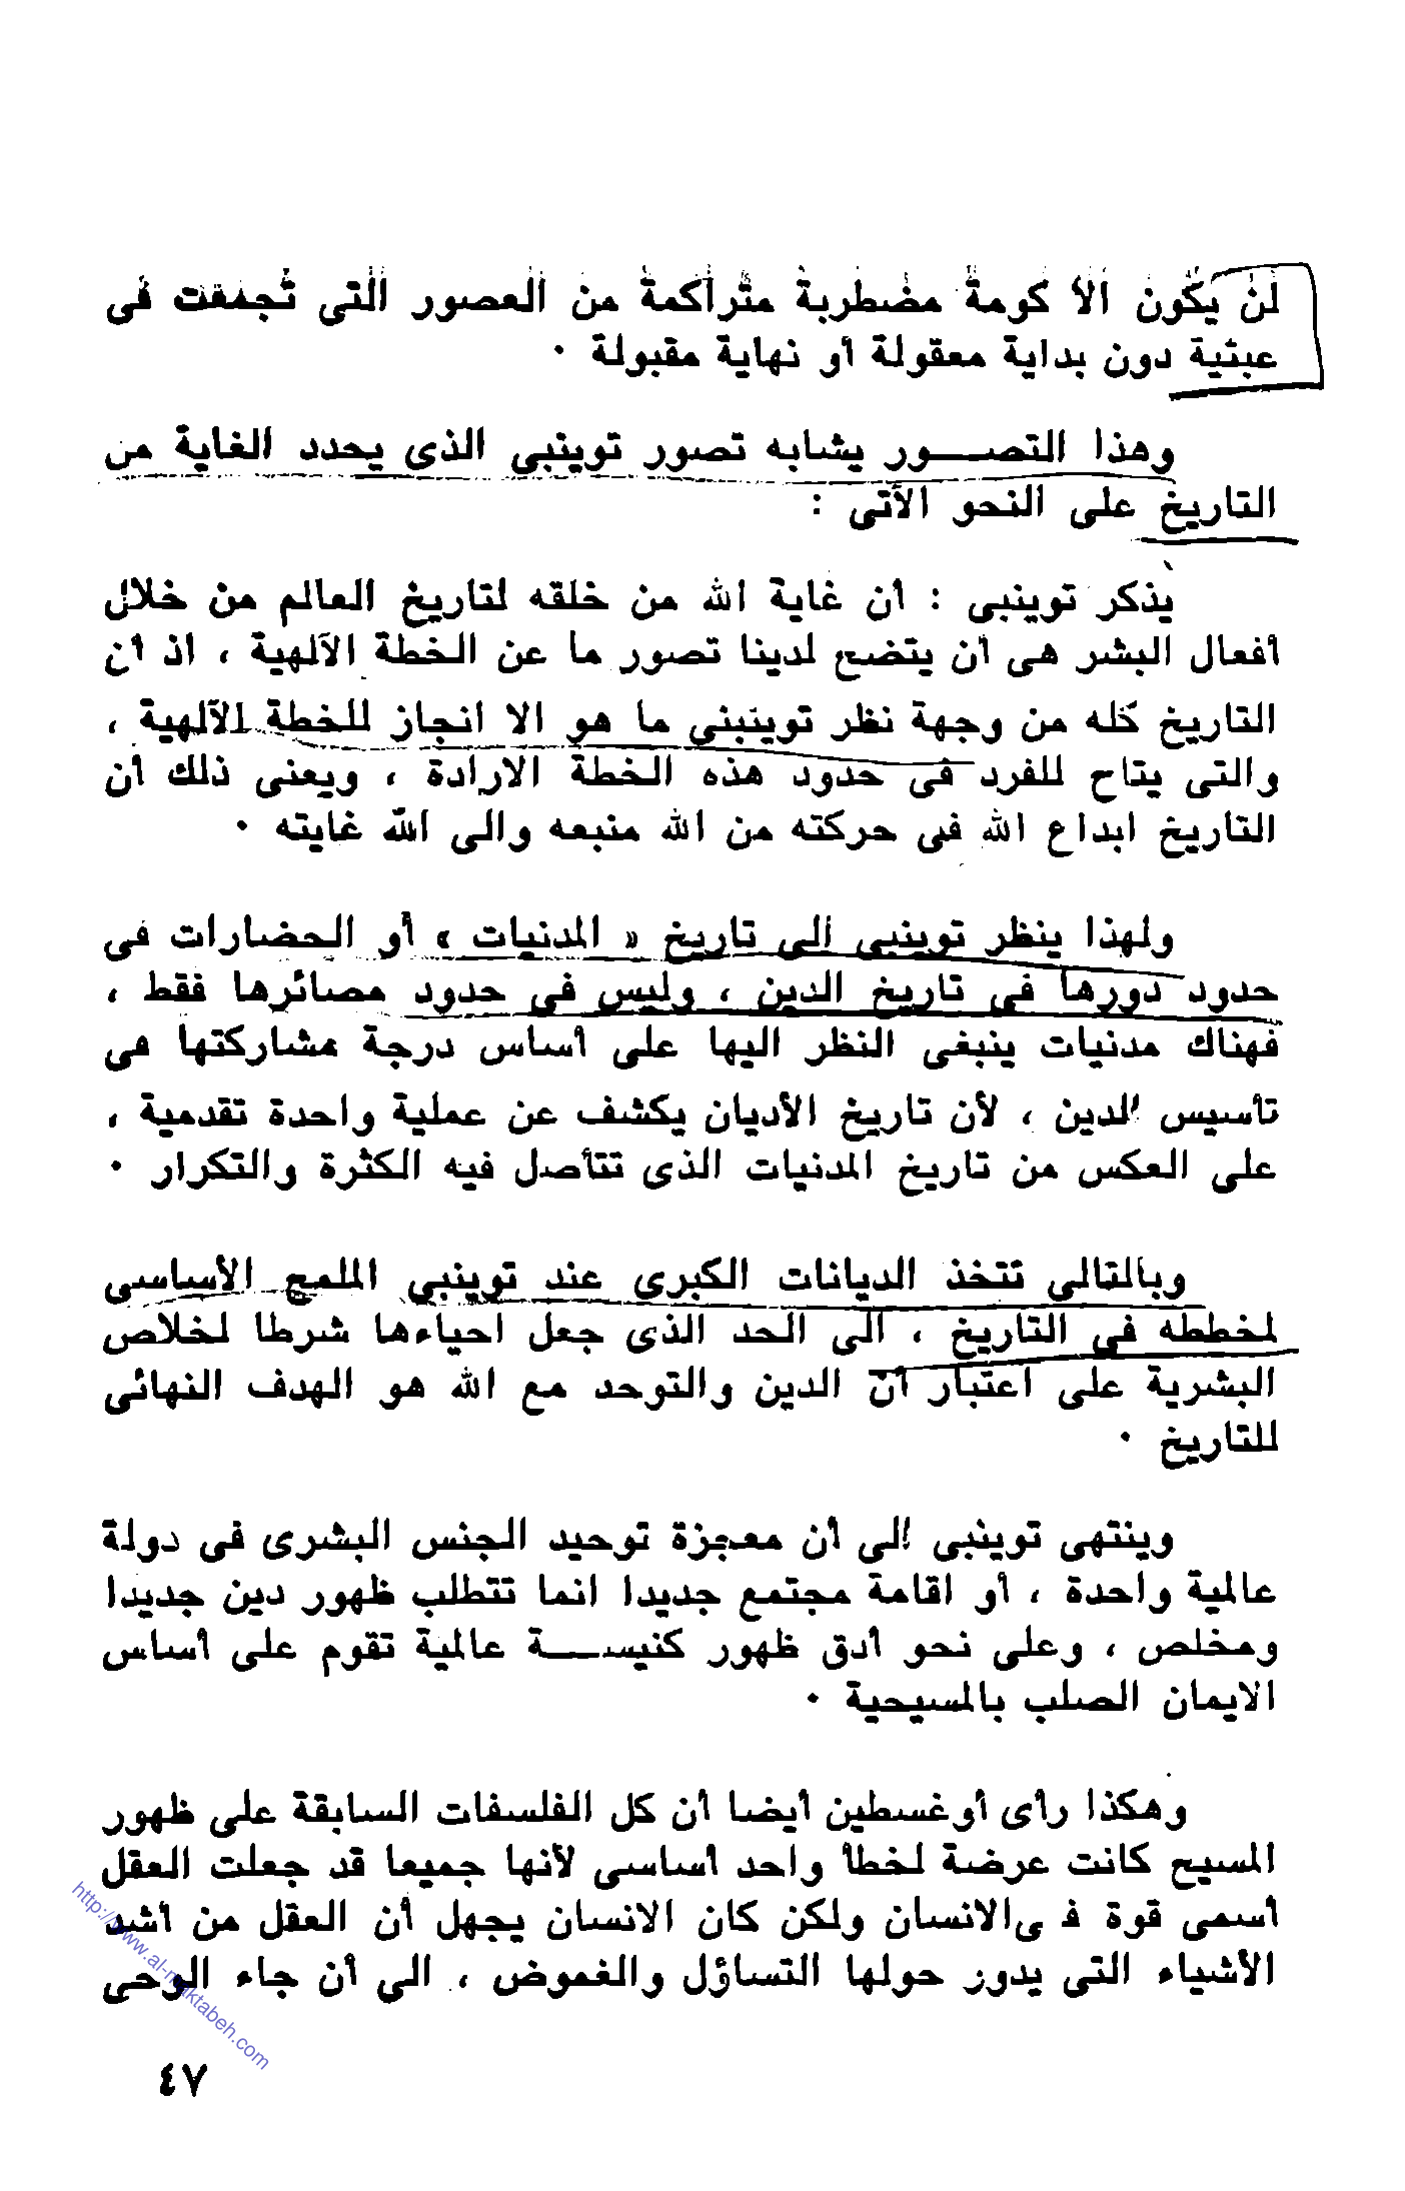 لن يكون الا كومة مضطربة متراكمة من العصور التى تجمعت فى
عبثية دون بداية معقولة أو نهاية مقبولة ٠
وهذا التصـــور يشابه تصور توينبى الذى يحدد الغاية من
التاريخ على النحو الآتى :
يذكر توينبى : أن غاية الله من خلقه لتاريخ العالم من خلال
أفعال البشر هى أن يتضح لدينا تصور ما عن الخطة الآلهية ، اذ أن
التاريخ كله من وجهة نظر توينبنى ما هو الا انجاز للخطة الآلهية ،
والتى يتاح للفرد فى حدود هذه الخطة الارادة ، ويعنى ذلك أن
التاريخ ابداع الله فى حركته من الله منبعه والى الله غايته ٠
ولهذا ينظر توينبى الى تاريخ « المدنيات » أو الحضارات فى
حدود دورها فى تاريخ الدين ، وليس فى حدود مصائرها فقط ،
فهناك مدنيات ينبغى النظر اليها على أساس درجة مشاركتها فى
تأسيس الدين ، لأن تاريخ الأديان يكشف عن عملية واحدة تقدمية ،
على العكس من تاريخ المدنيات الذى تتأصل فيه الكثرة والتكرار ٠
وبالتالى تتخذ الديانات الكبرى عند توينبى الملمح الأساسى
لمخططه فى التاريخ ، الى الحد الذى جعل احياءها شرطا لخلاص
البشرية على اعتبار أن الدين والتوحد مع الله هو الهدف النهائى
للتاريخ ٠
وينتهى توينبى الى أن معجزة توحيد الجنس البشرى فى دولة
عالمية واحدة ، أو اقامة مجتمع جديدا انما تتطلب ظهور دين جديدا
ومخلص ، وعلى نحو أدق ظهور كنيســـة عالمية تقوم على أساس
الايمان الصلب بالمسيحية ٠
وهكذا رأى أوغسطين أيضا أن كل الفلسفات السابقة على ظهور
المسيح كانت عرضة لخطأ واحد أساسى لأنها جميعا قد جعلت العقل
أسمى قوة ف ىالانسان ولكن كان الانسان يجهل أن العقل من أشد
الأشياء التى يدور حولها التساؤل والغموض ، الى أن جاء الوحى
http://www.al-maktabeh.com
٤٧